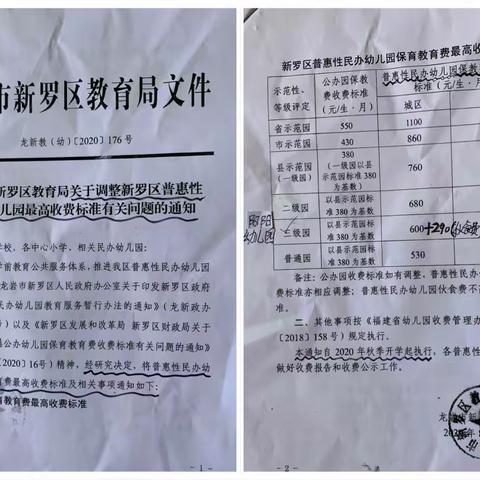 市新罗区教育局文件
龙新教（幼）〔2020〕176号
新罗区教育局关于调整新罗区普惠性
幼儿园最高收费标准有关问题的通知
学校，各中心小学、相关民办幼儿园：
学前教育公共服务体系，推进我区普惠性幼儿园
龙岩市新罗区人民政府办公室关于印发新罗区政府
民办幼儿园教育服务暂行办法的通知》（龙新政办
号）以及《新罗区发展和改革局 新罗区财政局关于
公办幼儿园保育教育费收费标准有关问题的通知》
〔2020〕16号）精神，经研究决定，将普惠性民办幼
育费最高收费标准及相关事项通知如下：
育教育费最高收费标准
- 1 -
新罗区普惠性民办幼儿园保育教育费最高收
示范性、
等级评定
公办园保教
费收费标准
（元/生·月）
普惠性民办幼儿园保教
标准（元/生·月）
城区
省示范园 550 1100
市示范园 430 860
县示范园
（一级园）
380
（一级园以县
示范园标准380
为基数）
760
二级园
以县示范园标
准380为基数
680
三级园
以县示范园标
准380为基数
600+290(伙食费)
普通园
以县示范园标
准380为基数
530
阳
幼儿园
备注：公办园收费标准如有调整，普惠性民办
费标准亦相应调整；普惠性民办幼儿园伙食费不
二、其他事项按《福建省幼儿园收费管理办
〔2018〕158号）规定执行。
本通知自2020年秋季开学起执行，各普惠性
做好收费报告和收费公示工作。
龙岩市新
- 2 -